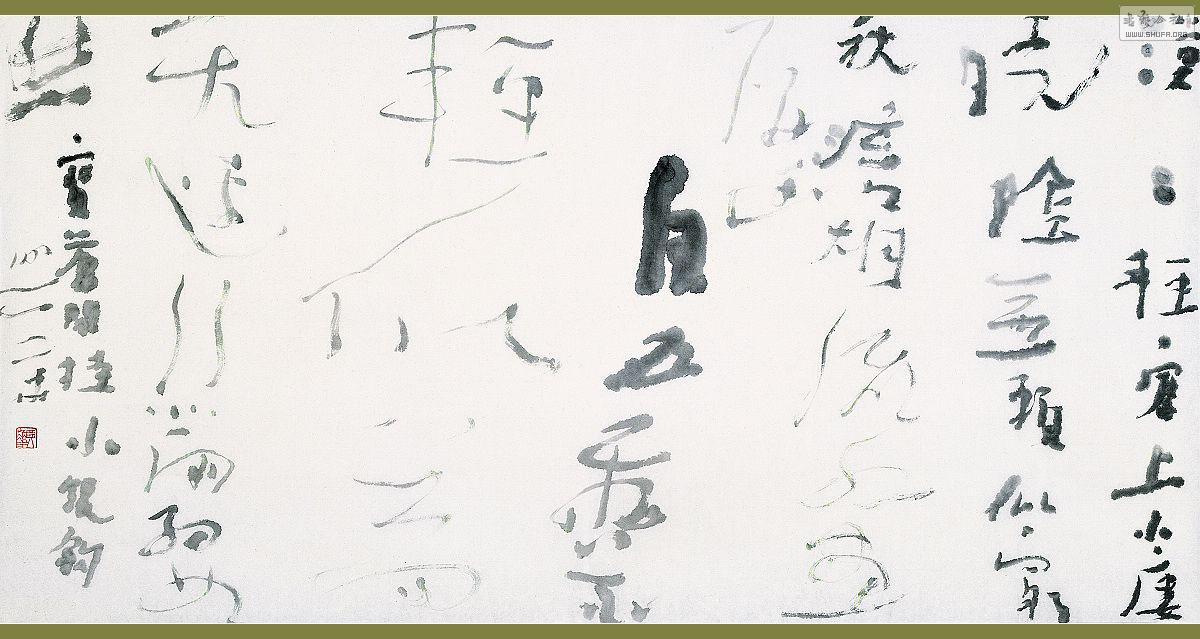 漠〻輕寒上小廔
曉陰無賴似窮
秋澹烟流水畫
屏幽
自在飛花
輕似夢
無邊絲雨細如
愁寶簾閒挂小銀鉤
WWW.SHUFA.ORG